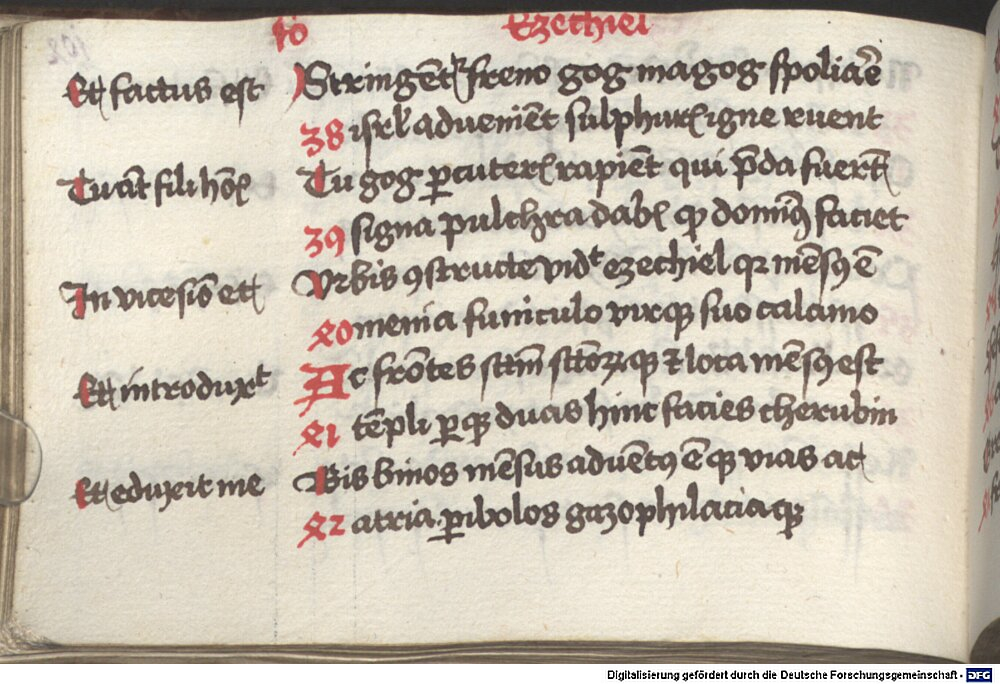 10 Ezechiel
Et factus est Stringēt freno gog magog spoliare
38 isrl advenient sulphur igne ruent
Tu aūt fili hōis Tu gog percutieris rapient qui p̄da fuerūt
39 signa pulchra dabis qꝫ dominus faciet
In vicesimo et Urbis ꝯstructe vidit ezechiel qꝫ mēsꝰ ē
40 menia funiculo virqꝫ suo calamo
Et introduxit Ac frōtes sctm̄ sctōꝝqꝫ et loca mēsꝰ est
41 tēpli perqꝫ duas hinc facies cherubin
Et eduxit me Bis binos mēsus aduētꝰ ēqꝫ vias ac
42 atria peribolos gazophilaciaqꝫ
Digitalisierung gefördert durch die Deutsche Forschungsgemeinschaft - DFG